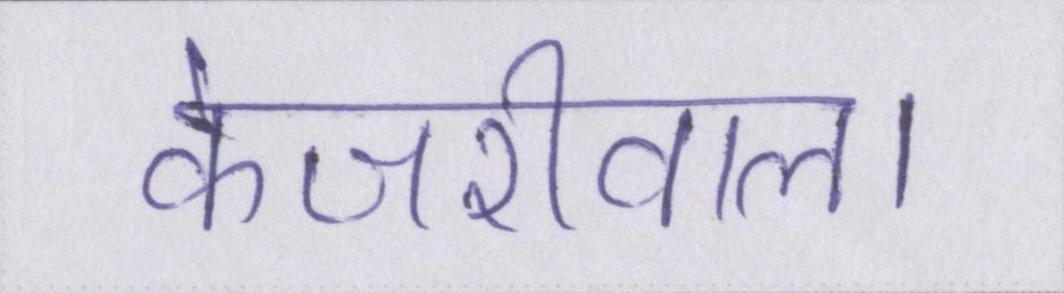 केजरीवाल।